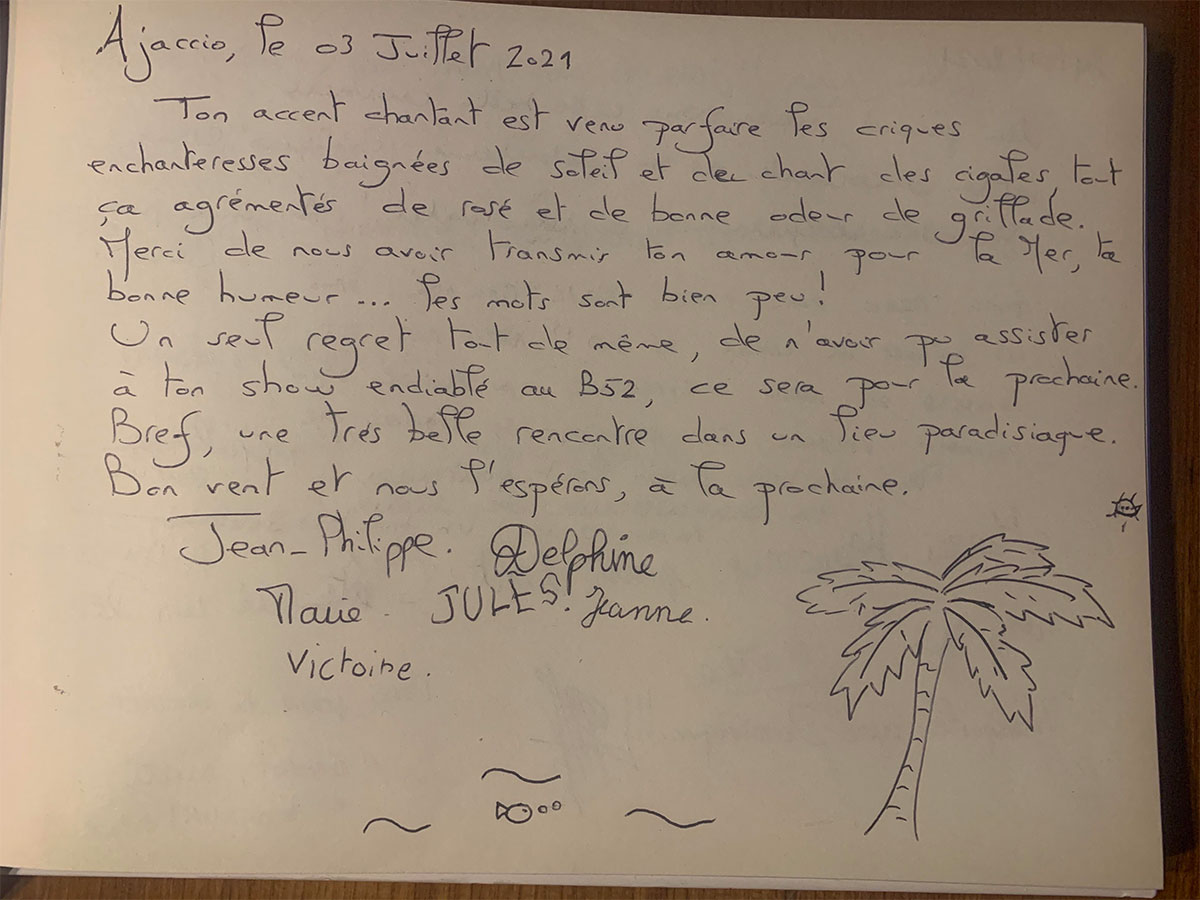 Ajaccio, le 03 Juillet 2021
Ton accent chantant est venu parfaire les criques
enchanteresses baignées de soleil et du chant des cigales, tout
ça agrémentés de rosé et de bonne odeur de grillade.
Merci de nous avoir transmis ton amour pour la Mer, ta
bonne humeur... les mots sont bien peu!
Un seul regret tout de même, de n'avoir pu assister
à ton show endiablé au B52, ce sera pour la prochaine.
Bref, une trés belle rencontre dans un lieu paradisiaque.
Bon vent et nous l'espérons, à la prochaine.
Jean-Philippe. Delphine
Marie. JULES! Jeanne.
Victoire.